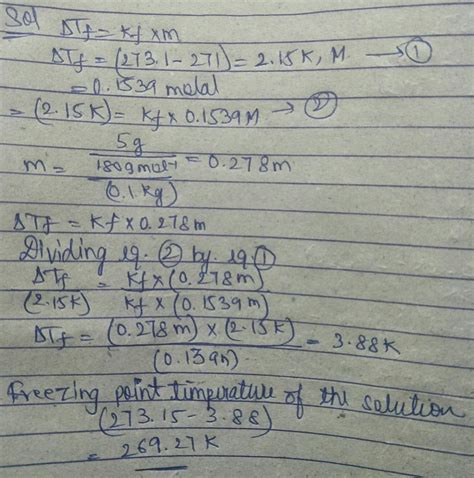 Sol ΔTf = Kf × m
ΔTf = (273.1 - 271) = 2.15K, M → ①
= 0.1539 molal
= (2.15K) = Kf × 0.1539M → ②
5g
m = 180gmol-1 = 0.278m
(0.1 kg)
ΔTf = Kf × 0.278m
Dividing eq. ② by eq. ①
ΔTf = Kf × (0.278m)
(2.15K) Kf × (0.1539m)
ΔTf = (0.278m) × (2.15K) = 3.88K
Freezing point timperature of the solution
(273.15 - 3.88)
= 269.27K